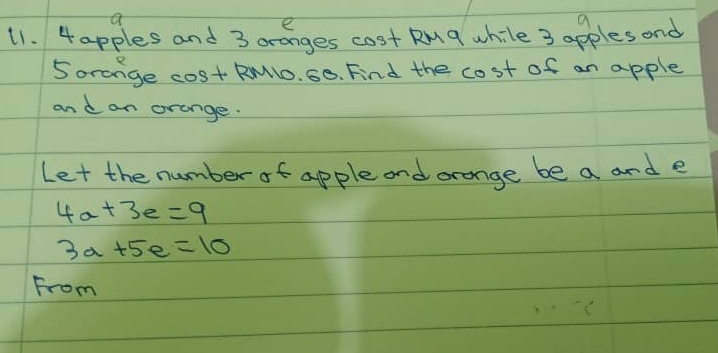 a e a
11. 4 apples and 3 oranges cost RM9 while 3 apples and
e
5 orange cost RM10.60. Find the cost of an apple
and an orange.
Let the number of apple and orange be a and e
4a+3e=9
3a+5e=10
From